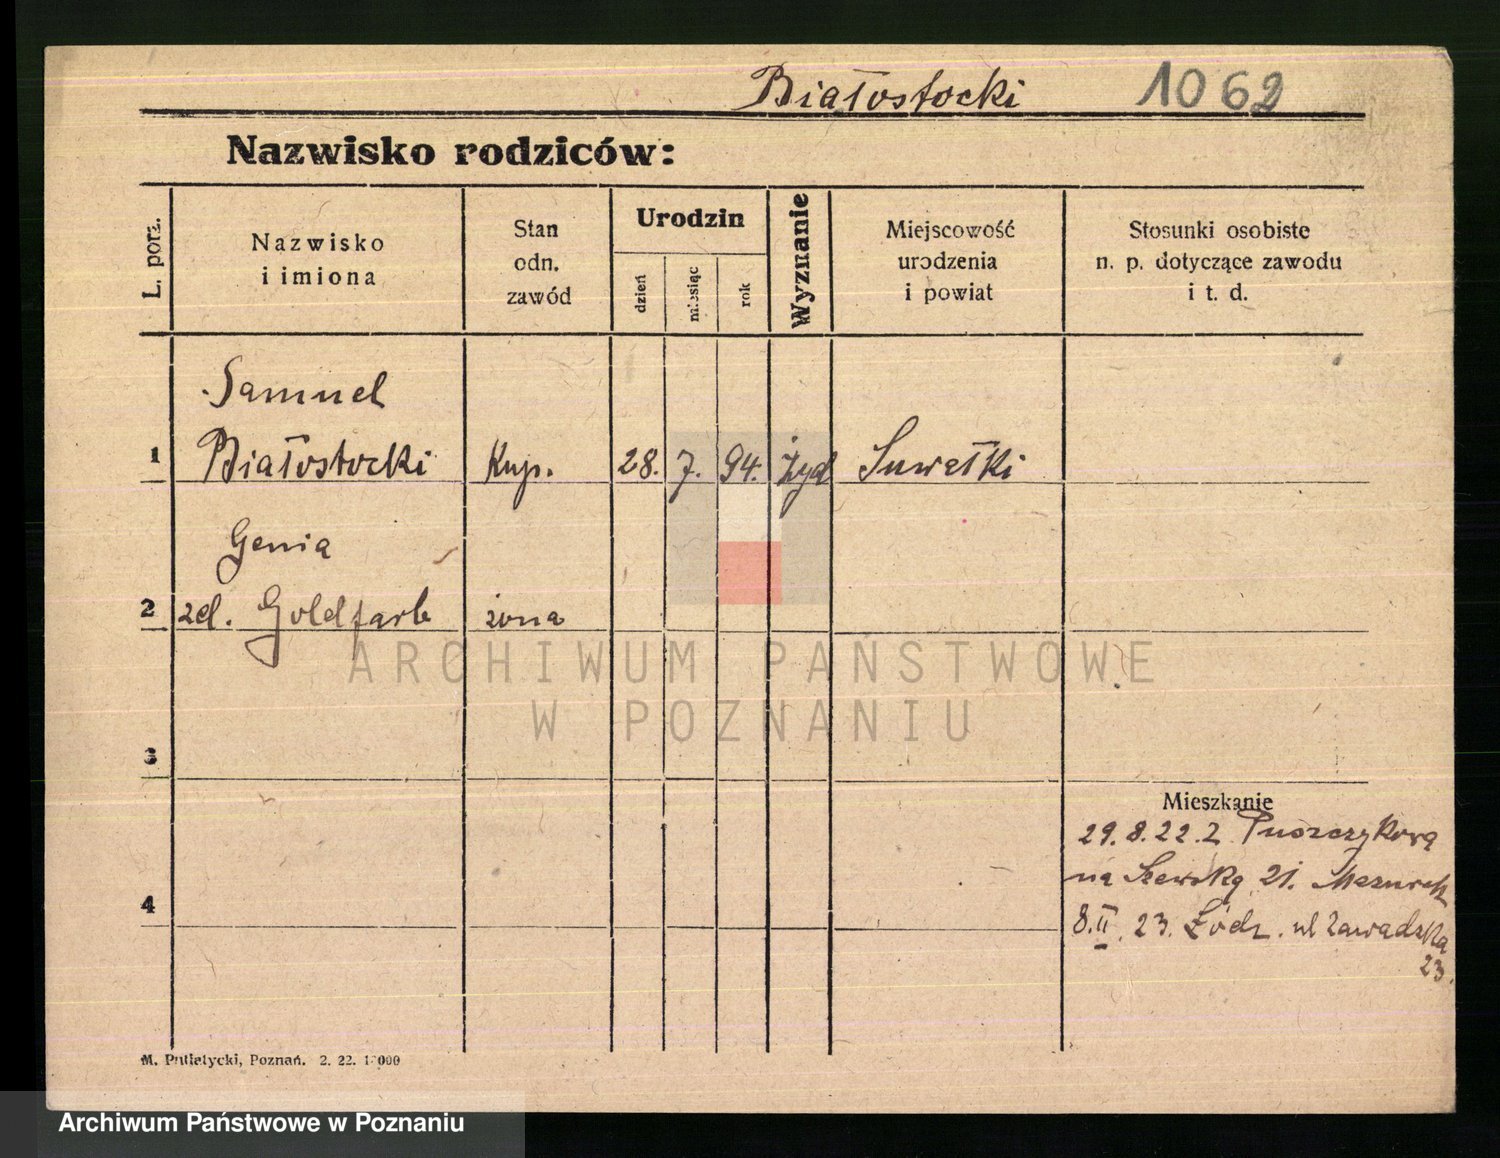 Białostocki 1062
Nazwisko rodziców:
L. porz.
Nazwisko
i imiona
Stan
odn.
zawód
Urodzin
dzień
miesiąc
rok
Wyznanie
Miejscowość
urodzenia
i powiat
Stosunki osobiste
n. p. dotyczące zawodu
i t. d.
Samuel
1 Białostocki Kup. 28. 7. 94. żyd Suwałki
Genia
2 zd. Goldfarb żona
ARCHIWUM PAŃSTWOWE
W POZNANIU
3
Mieszkanie
29.8.22. z Puszczykowa
na Szewską 21. Mazurek
4
8.II. 23. Łódz. ul Zawadzka
23.
M. Putiatycki, Poznań. 2. 22.
Archiwum Państwowe w Poznaniu